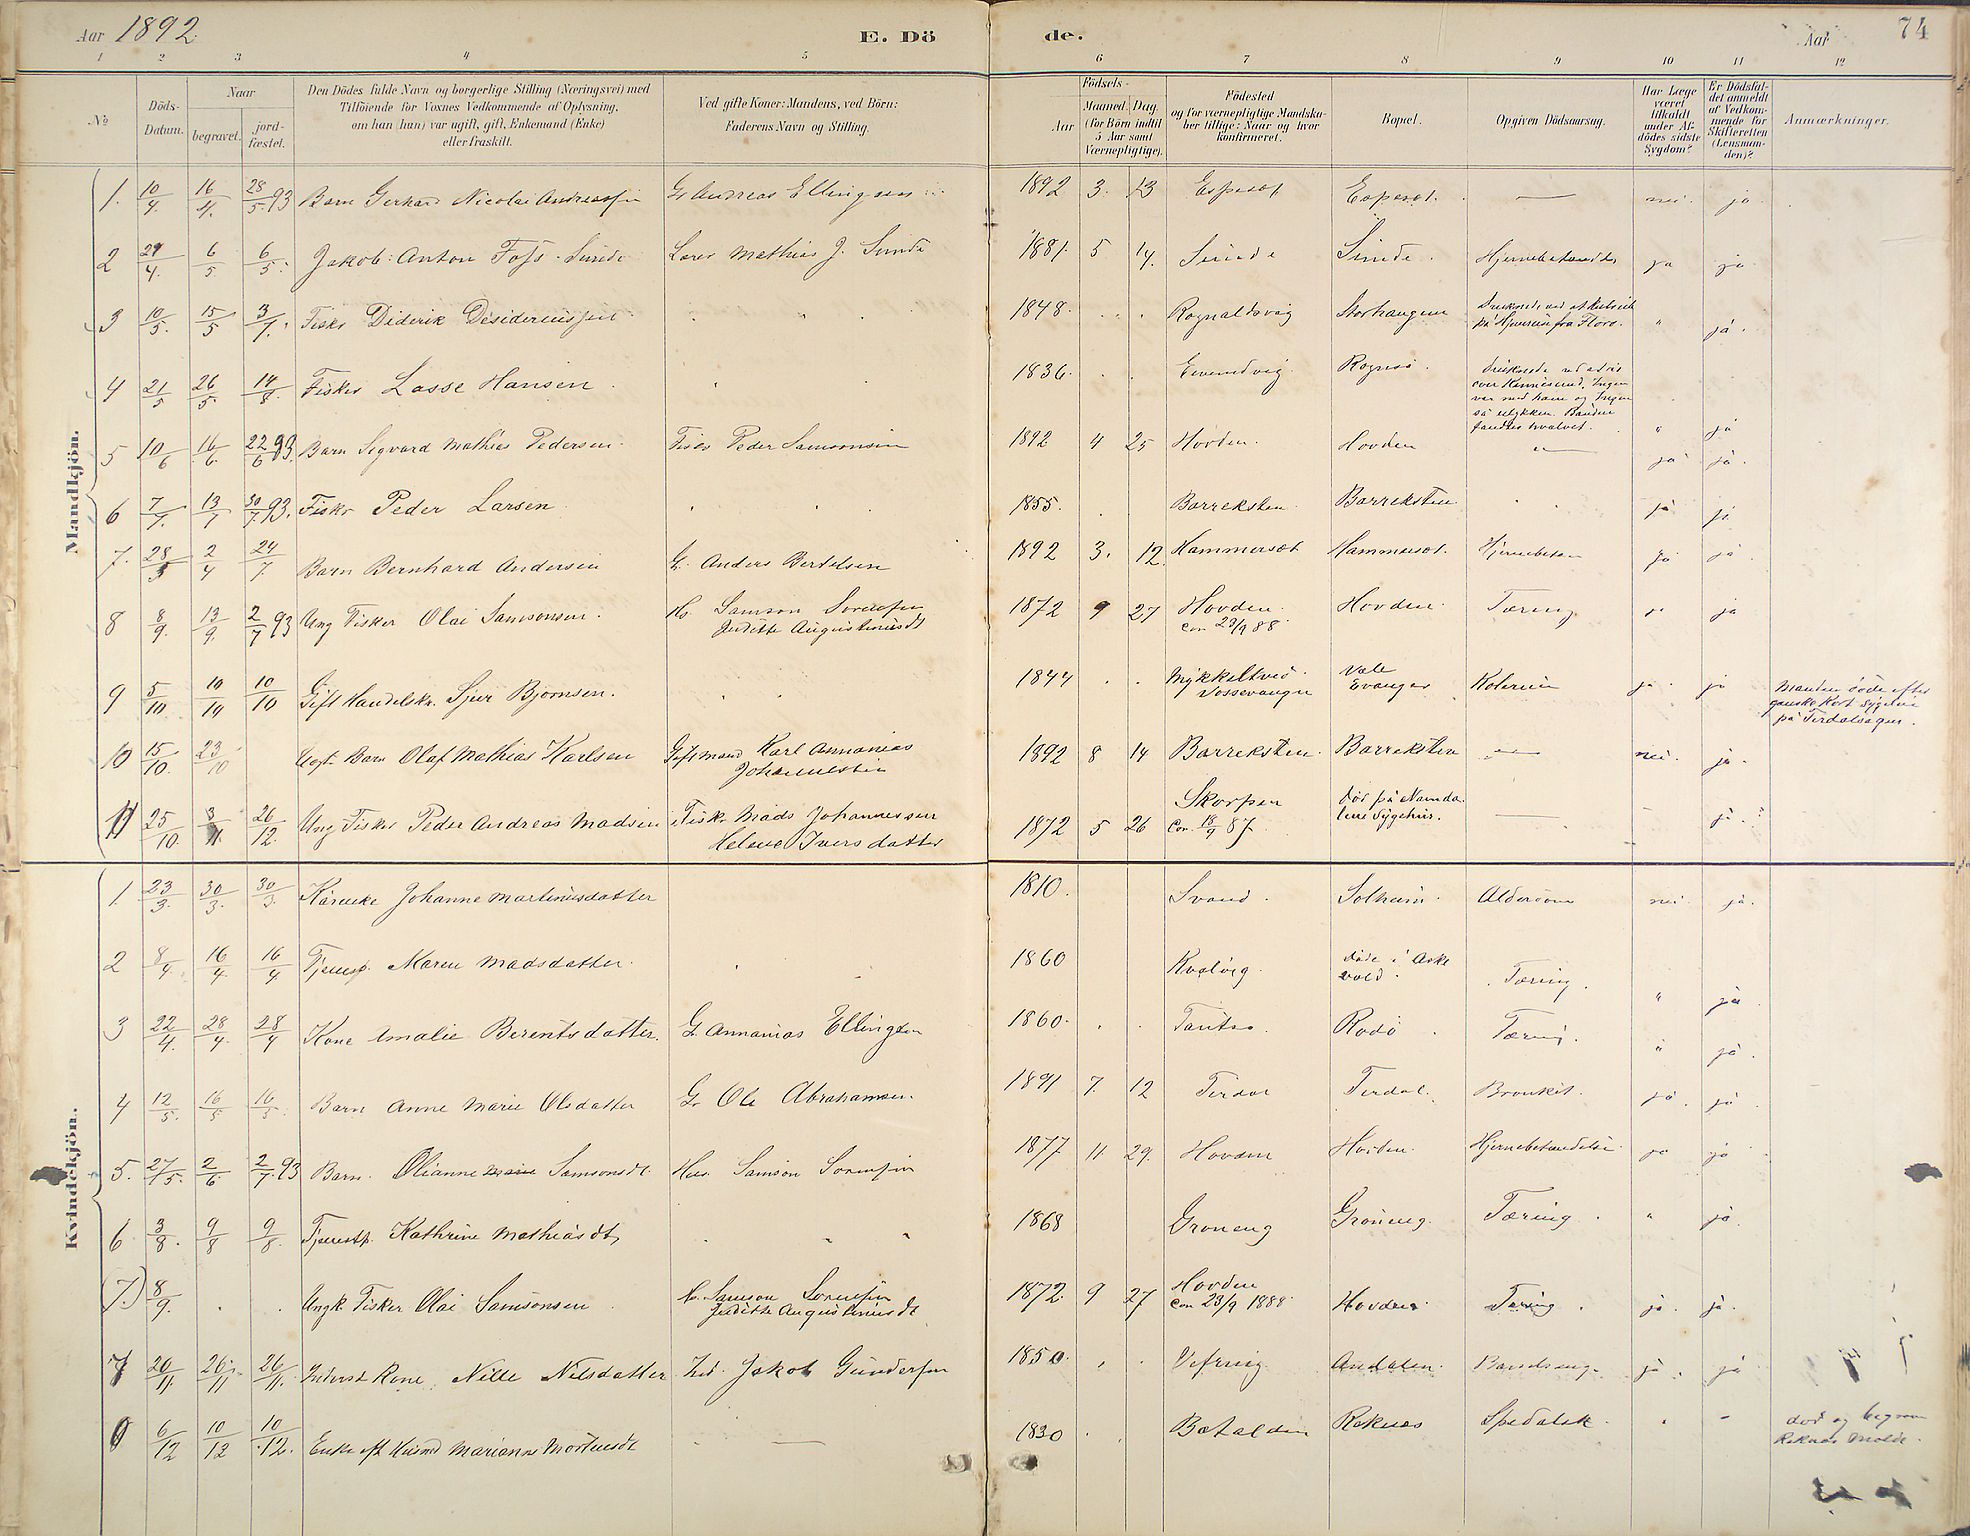 Aar 1892. E. Döde. Aar 74
1 2 3 4 5 6 7 8 9 10 11 12
No
Döds-Datum.
Naar
begravet.
jord-fæstet.
Den Dödes fulde Navn og borgerlige Stilling (Næringsvei) med
Tilföiende for Voxnes Vedkommende af Oplysning,
om han (hun) var ugift, gift, Enkemand (Enke)
eller fraskilt.
Ved gifte Koner: Mandens, ved Börn:
Faderens Navn og Stilling.
Födsels-
Aar
Maaned. Dag.
(for Börn indtil
5 Aar samt
Værnepligtige).
Födested
og for værnepligtige Mandska-
ber tillige: Naar og hvor
konfirmeret.
Bopæl.
Opgiven Dödsaarsag.
Har Læge
været
tilkaldt
under Af-
dödes sidste
Sygdom?
Er Dödsfal-
det anmeldt
af Vedkom-
mende for
Skifteretten
(Lensman-
den)?
Anmærkninger.
Mandkjön.
1. 10/4. 16/4. 28/5. 93 Barn Gerhard Nicolai Andreassen G. Andreas Ellingsen 1892 3. 13 Espeset Espeset. — nei. ja
2 29/4. 6/5 6/5. Jakob Anton Foss Sunde Lærer Mathias J. Sunde 1881. 5 14. Sunde Sunde. Hjernebetændelse ja ja
3 10/5. 15/5 3/7. Fisker Diderik Desideriussen 1848. Rognaldsvig Storhaugen Druknede ved
på Hjemreise fra Florø. " ja.
4 21/5 26/5. 14/8 Fisker Lasse Hansen 1836. Eivindvig. Rognsø. Druknede ved
over Ingen
var med ham og Ingen
så ulykken. Baaden
fandtes hvalvet. " ja
5 10/6 16/6. 22/6 93. Barn Sigvard Mathias Pedersen Fisker Peder Samsonsen 1892 4 25 Hovden. Hovden — ja ja.
6 7/7. 13/7 30/7. 93. Fisker Peder Larsen 1855. Barreksten Barreksten ja ja
7. 28/3 2/4 24/7. Barn Bernhard Andersen G. Anders Bertelsen 1892 3. 12. Hammerset Hammerset. Hjernebetæn ja ja
8 8/9. 13/9. 2/7 93 Ung Fisker Olai Samsonsen. Hs. Samson Sørensen
Judithe Augustinusdt 1872 9 27 Hovden.
Con 23/9 88 Hovden. Tæring ja ja
9 5/10 10/10 10/10 Gift Handelskr. Sjur Bjørnsen. 1844 Mykkeltved
Vossevangen Væle
Evanger Kolerine ja. ja Manden døde efter
ganske kort Sygeleie
på Tirdalsøen.
10 15/10. 23/10 Ægt. Barn Olaf Mathias Karlsen Gift mand Karl Annanias
Johannessen 1892 8 14 Barreksten. Barreksten — nei. ja.
11 25/10. 3/11. 26/12. Ung Fisker Peder Andreas Madsen Fisk. Mads Johannessen
Helene Iversdatter 1872 5 26 Skorpen
Con. 18/9 87. Død på Namda
lens Sygehus. — ja.
Kvindekjön.
1. 23/3. 30/3. 30/3. Kårenke Johanne Martinusdatter 1810. Svand. Solheim. Alderdom nei. ja.
2 8/4. 16/4. 16/4 Tjenestp. Maren Madsdatter. 1860 Kvalvig. Døde i Aske
vold. Tæring. " ja
3 22/4. 28/4. 28/4 Kone Amalie Berentsdatter. G. Annanias Ellingsen 1860. Tantsø. Rodø Tæring. " ja.
4 12/5. 16/5 16/5. Barn Anne Marie Olsdatter G. Ole Abrahamsen. 1891 7. 12 Tirdal Tirdal. Bronkit. ja. ja.
5. 27/5. 2/6 2/7. 93 Barn. Olianne Marie Samsonsdt. Hus. Samson Sørensen 1877. 11. 29. Hovden Hovden. Hjernebetændelse. ja ja
6 3/8. 9/8 9/8. Tjenestp. Kathrine Mathiasdt. 1868 Grøneng Grøneng. Tæring. " ja.
(7.) 8/9. Ungk. Fisker Olai Samsonsen H. Samson Sørensen
Judithe Augustinusdt. 1872. 9 27 Hovden
Con 23/9 1888. Hovden. Tæring. ja. ja.
7 20/11. 26/11 26/11. Inderst Kone Nille Nilsdatter Ind. Jakob Gundersen 1850. Vefring. Andalen. ja. ja
6/12 10/12 10/12. Enke eft. Marianne Mortensdt — 1830 Batalden Reknæs Spedalsk. – død og begraven
Reknæs Molde.